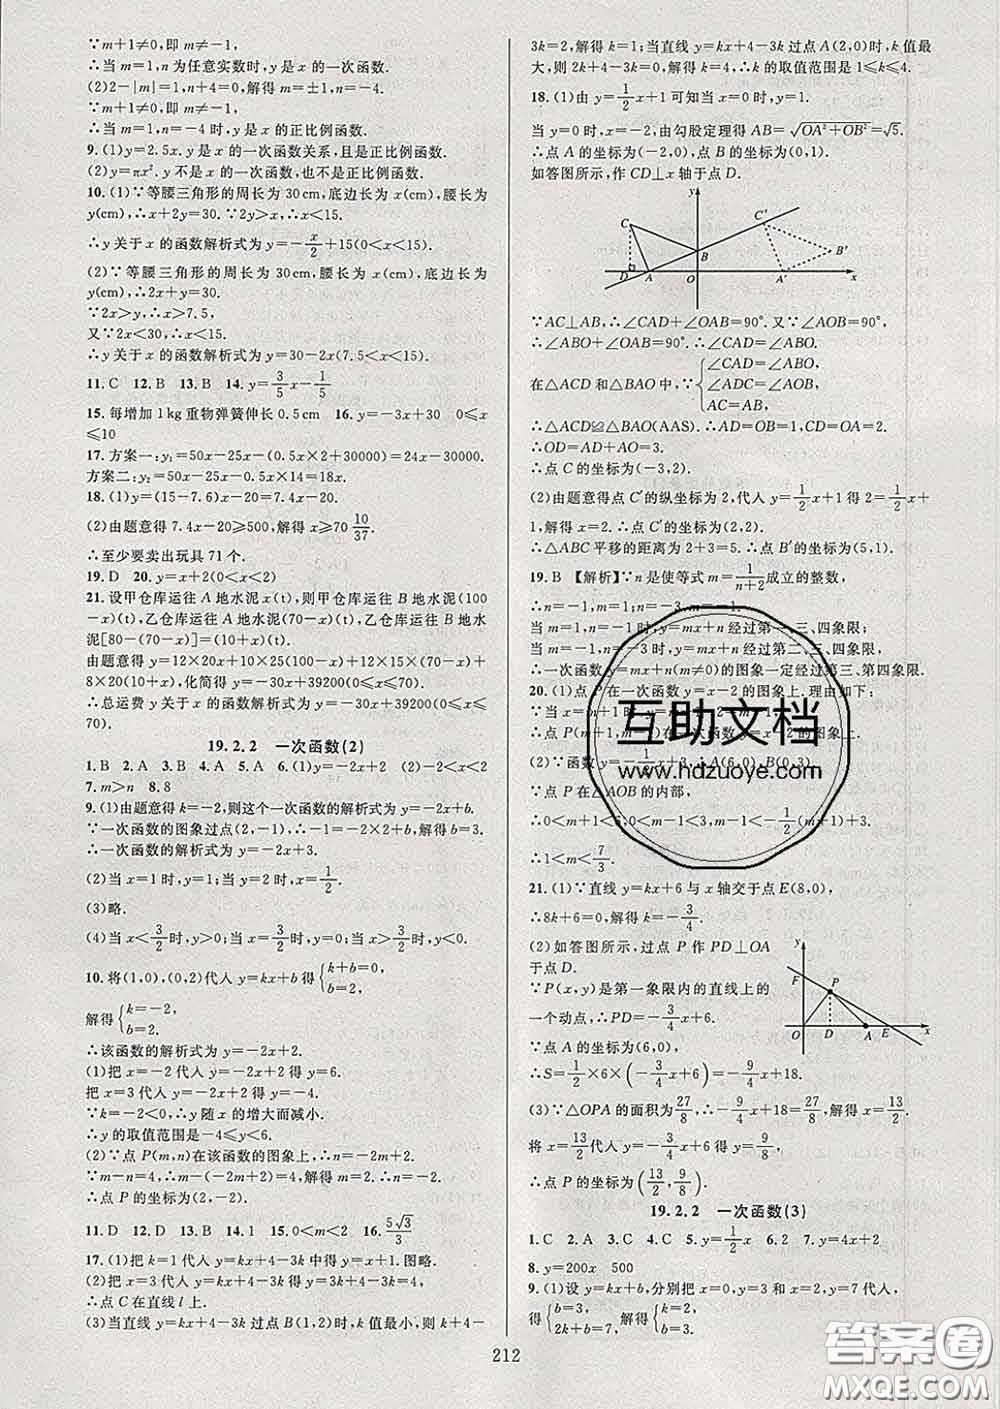 ∵m+1≠0,即 m≠-1,
∴当 m=1,n 为任意实数时,y 是 x 的一次函数.
(2)2-|m|=1,n+4=0,解得 m=±1,n=-4.
∵m+1≠0,即 m≠-1,
∴当 m=1,n=-4 时,y 是 x 的正比例函数.
9.(1)y=2.5x.y 是 x 的一次函数关系,且是正比例函数.
(2)y=πx².y 不是 x 的一次函数,也不是正比例函数.
10.(1)∵等腰三角形的周长为 30 cm,底边长为 x(cm),腰长为
y(cm),∴x+2y=30.∵2y>x,∴x<15.
∴y 关于 x 的函数解析式为 y=-x/2+15(0<x<15).
(2)∵等腰三角形的周长为 30 cm,腰长为 x(cm),底边长为
y(cm),∴2x+y=30.
∵2x>y,∴x>7.5,
又∵2x<30,∴x<15.
∴y 关于 x 的函数解析式为 y=30-2x(7.5<x<15).
11.C 12.B 13.B 14.y=3/5x-1/5
15.每增加 1 kg 重物弹簧伸长 0.5 cm 16.y=-3x+30 0≤x
≤10
17.方案一:y₁=50x-25x-(0.5x×2+30000)=24x-30000.
方案二:y₂=50x-25x-0.5x×14=18x.
18.(1)y=(15-7)x-0.6x-20=7.4x-20.
(2)由题意得 7.4x-20≥500,解得 x≥70 10/37.
∴至少要卖出玩具 71 个.
19.D 20.y=x+2(0<x<2)
21.设甲仓库运往 A 地水泥 x(t),则甲仓库运往 B 地水泥(100
-x)(t),乙仓库运往 A 地水泥(70-x)(t),乙仓库运往 B 地水
泥[80-(70-x)]=(10+x)(t).
由题意得 y=12×20x+10×25(100-x)+12×15×(70-x)+
8×20(10+x),化简得 y=-30x+39200(0≤x≤70).
∴总运费 y 关于 x 的函数解析式为 y=-30x+39200(0≤x≤
70).
19.2.2 一次函数(2)
1.B 2.A 3.B 4.A 5.A 6.(1)y=-2x+2 (2)-2<x<2
7.m>n 8.8
9.(1)由题意得 k=-2,则这个一次函数的解析式为 y=-2x+b.
∵一次函数的图象过点(2,-1),∴-1=-2×2+b,解得 b=3.
∴一次函数的解析式为 y=-2x+3.
(2)当 x=1 时,y=1;当 y=0 时,x=3/2.
(3)略.
(4)当 x<3/2时,y>0;当 x=3/2时,y=0;当 x>3/2时,y<0.
10.将(1,0),(0,2)代入 y=kx+b 得{k+b=0, b=2,
解得{k=-2, b=2.
∴该函数的解析式为 y=-2x+2.
(1)把 x=-2 代入 y=-2x+2 得 y=6.
把 x=3 代入 y=-2x+2 得 y=-4.
∵-2<0,∴y 随 x 的增大而减小.
∴y 的取值范围是-4≤y<6.
(2)∵点 P(m,n)在该函数的图象上,∴n=-2m+2.
∵m-n=4,∴m-(-2m+2)=4,解得 m=2,n=-2.
∴点 P 的坐标为(2,-2).
11.D 12.D 13.B 14.1 15.0<m<2 16.5√3/3
17.(1)把 k=1 代入 y=kx+4-3k 中得 y=x+1.图略.
(2)把 x=3 代入 y=kx+4-3k 得 y=3k+4-3k=4,
∴点 C 在直线 l 上.
(3)当直线 y=kx+4-3k 过点 B(1,2)时,k 值最小,则 k+4-
3k=2,解得 k=1;当直线 y=kx+4-3k 过点 A(2,0)时,k 值最
大,则 2k+4-3k=0,解得 k=4,∴k 的取值范围是 1≤k≤4.
18.(1)由 y=1/2x+1 可知当 x=0 时,y=1.
当 y=0 时,x=-2,由勾股定理得 AB=√OA²+OB²=√5.
∴点 A 的坐标为(-2,0),点 B 的坐标为(0,1).
如答图所示,作 CD⊥x 轴于点 D.
y
C C′
B B′
D A O A′ x
∵AC⊥AB,∴∠CAD+∠OAB=90°.又∵∠AOB=90°,
∴∠ABO+∠OAB=90°,∴∠CAD=∠ABO.
在△ACD 和△BAO 中,∵{∠CAD=∠ABO, ∠ADC=∠AOB, AC=AB,
∴△ACD≌△BAO(AAS).∴AD=OB=1,CD=OA=2.
∴OD=AD+AO=3.
∴点 C 的坐标为(-3,2).
(2)由题意得点 C′的纵坐标为 2,代入 y=1/2x+1 得 2=1/2x+
1,解得 x=2.∴点 C′的坐标为(2,2).
∴△ABC 平移的距离为 2+3=5.∴点 B′的坐标为(5,1).
19.B 【解析】∵n 是使等式 m=1/n+2成立的整数,
∴n=-1 或-3,∴m=1 或-1.
当 m=1,n=-1 时,y=mx+n 经过第一、三、四象限;
当 m=-1,n=-3 时,y=mx+n 经过第二、三、四象限,
∴一次函数 y=mx+n(m≠0)的图象一定经过第三、第四象限.
20.(1)点 P 在一次函数 y=x-2 的图象上.理由如下:
∵当 x=m+1 时,y=m+1-2=m-1,
∴点 P(m+1,m-1)在一次函数 y=x-2 的图象上.
(2)∵函数 y=-1/2x+3,∴A(6,0),B(0,3).
∵点 P 在△AOB 的内部,
∴0<m+1<6,0<m-1<3,m-1<-1/2(m+1)+3.
∴1<m<7/3.
21.(1)∵直线 y=kx+6 与 x 轴交于点 E(8,0),
∴8k+6=0,解得 k=-3/4.
(2)如答图所示,过点 P 作 PD⊥OA
于点 D.
∵P(x,y)是第一象限内的直线上的
一个动点,∴PD=-3/4x+6.
∵点 A 的坐标为(6,0),
y
F P
O D A E x
∴S=1/2×6×(-3/4x+6)=-9/4x+18.
(3)∵△OPA 的面积为27/8,∴-9/4x+18=27/8,解得 x=13/2.
将 x=13/2代入 y=-3/4x+6 得 y=9/8,
∴点 P 的坐标为(13/2,9/8).
19.2.2 一次函数(3)
1.C 2.A 3.C 4.C 5.y=1/2x 6.2 7.y=4x+2
8.y=200x 500
9.(1)设 y=kx+b,分别把 x=0,y=3 和 x=2,y=7 代入,
得{b=3, 2k+b=7; 解得{k=2, b=3.
212
互助文档
www.hdzuoye.com
答案圈
MXQE.COM